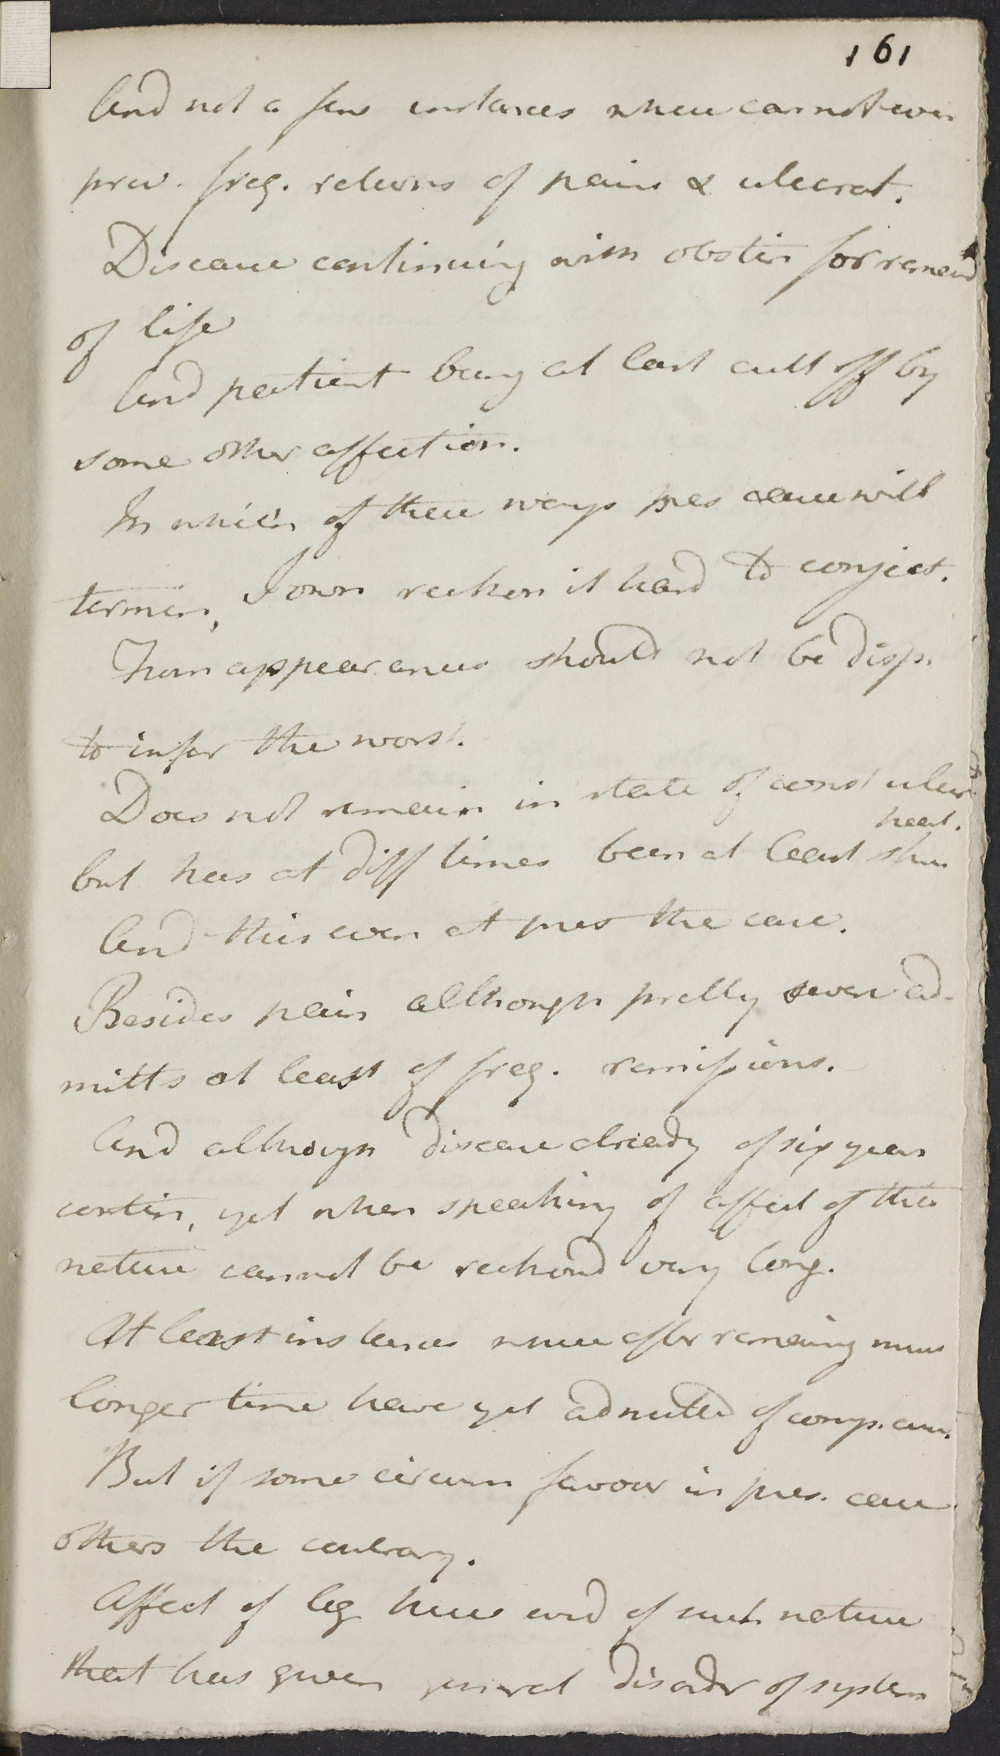 161
And not a few instances where cannot even
prev. freq. returns of pain & ulcerat.
Disease continuing with obstin for remaind
of life
And patient being at last cutt off by
some other affection.
In which of these ways pres case will
termin, I own reckon it hard to conject.
From appearances should not be disp.
to infer the worst.
Does not remain in state of const ulcerat
heal.
but has at diff times been at least skin
And this even at pres the case.
Besides pain although pretty severe ad-
mitts at least of freq. remissions.
And although disease already of six years
contin, yet when speaking of affect of this
nature cannot be reckond very long.
At least instances where after remaining much
longer time have yet admitted of comp. cure.
But if some circum favour in pres. case
others the contrary.
Affect of leg here evid of such nature
that has given general disorder of system